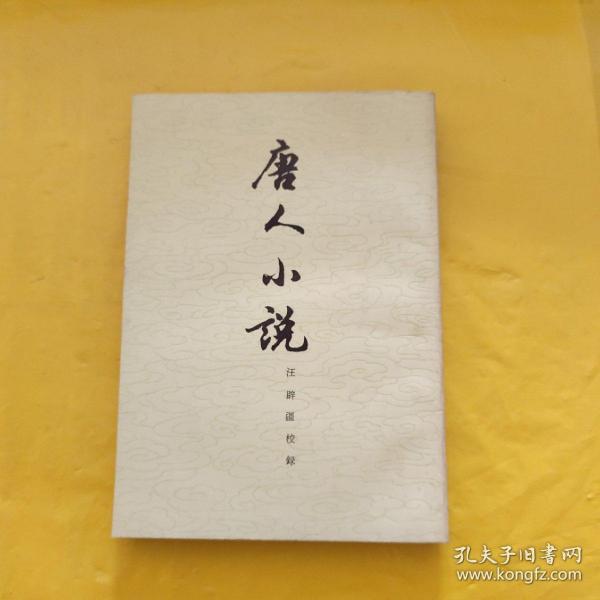 唐人小說
汪辟疆校録
孔夫子旧书网
www.kongfz.com